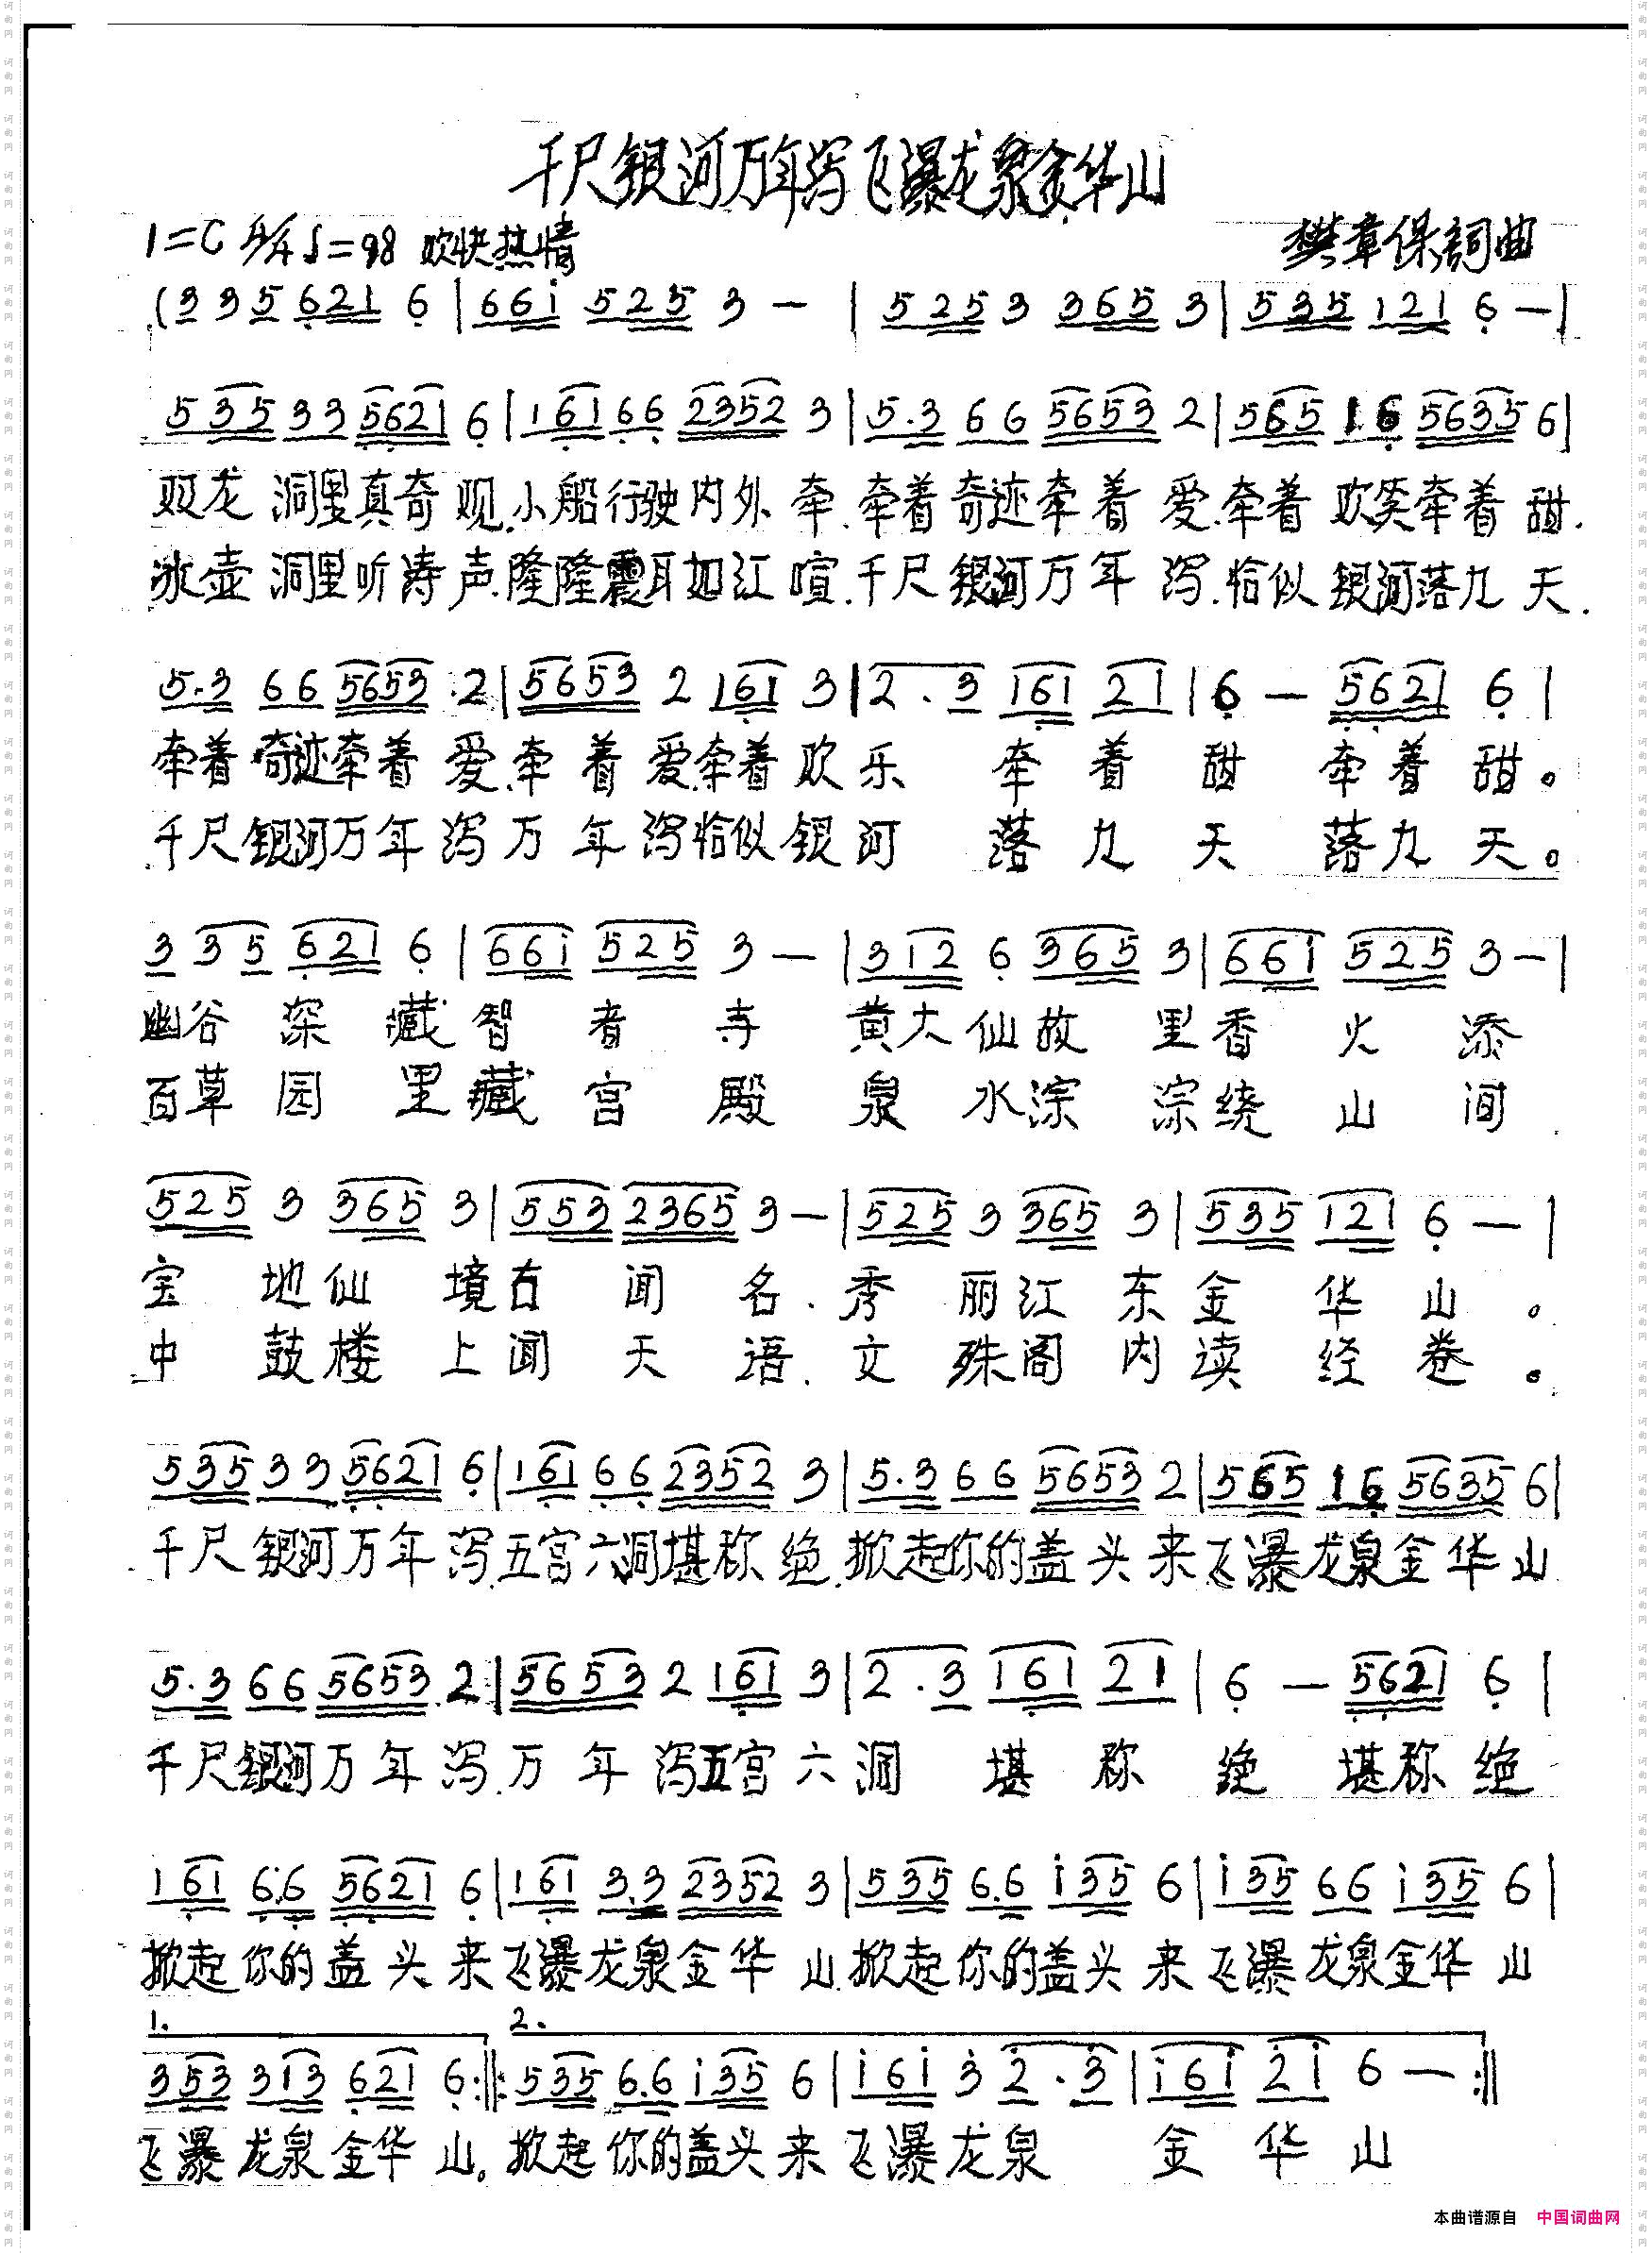 千尺银河万年泻飞瀑龙泉金华山
1=C 4/4 ♩=98 欢快热情 樊章保詞曲
(3 3 5 621 6 | 661 525 3 - | 525 3 365 3 | 535 121 6 - |
535 33 5621 6 | 161 66 2352 3 | 5.3 66 5653 2 | 565 16 5635 6 |
双龙洞里真奇观.小船行驶内外牵.牵着奇迹牵着爱.牵着欢笑牵着甜.
冰壶洞里听涛声.隆隆震耳如江喧.千尺银河万年泻.恰似银河落九天.
5.3 66 5653 2 | 5653 2 161 3 | 2.3 161 21 | 6 - 5621 6 |
牵着奇迹牵着爱.牵着爱.牵着欢乐牵着甜牵着甜。
千尺银河万年泻万年泻恰似银河落九天落九天。
3 3 5 621 6 | 661 525 3 - | 312 6 365 3 | 661 525 3 - |
幽谷深藏智者寺黄大仙故里香火添
百草园里藏宫殿泉水淙淙绕山间
525 3 365 3 | 553 2365 3 - | 525 3 365 3 | 535 121 6 - |
宝地仙境古闻名.秀丽江东金华山。
中鼓楼上闻天语.文殊阁内读经卷。
535 33 5621 6 | 161 66 2352 3 | 5.3 66 5653 2 | 565 16 5635 6 |
千尺银河万年泻.五宫六洞堪称绝.掀起你的盖头来飞瀑龙泉金华山
5.3 66 5653 2 | 5653 2 161 3 | 2.3 161 21 | 6 - 5621 6 |
千尺银河万年泻.万年泻五宫六洞堪称绝堪称绝
161 6.6 5621 6 | 161 3.3 2352 3 | 535 6.6 135 6 | 135 66 135 6 |
掀起你的盖头来飞瀑龙泉金华山.掀起你的盖头来飞瀑龙泉金华山
1. 2.
353 313 621 6 :‖: 535 6.6 135 6 | 161 3 2.3 | 161 21 6 - :‖
飞瀑龙泉金华山。掀起你的盖头来飞瀑龙泉金华山
本曲谱源自 中国词曲网